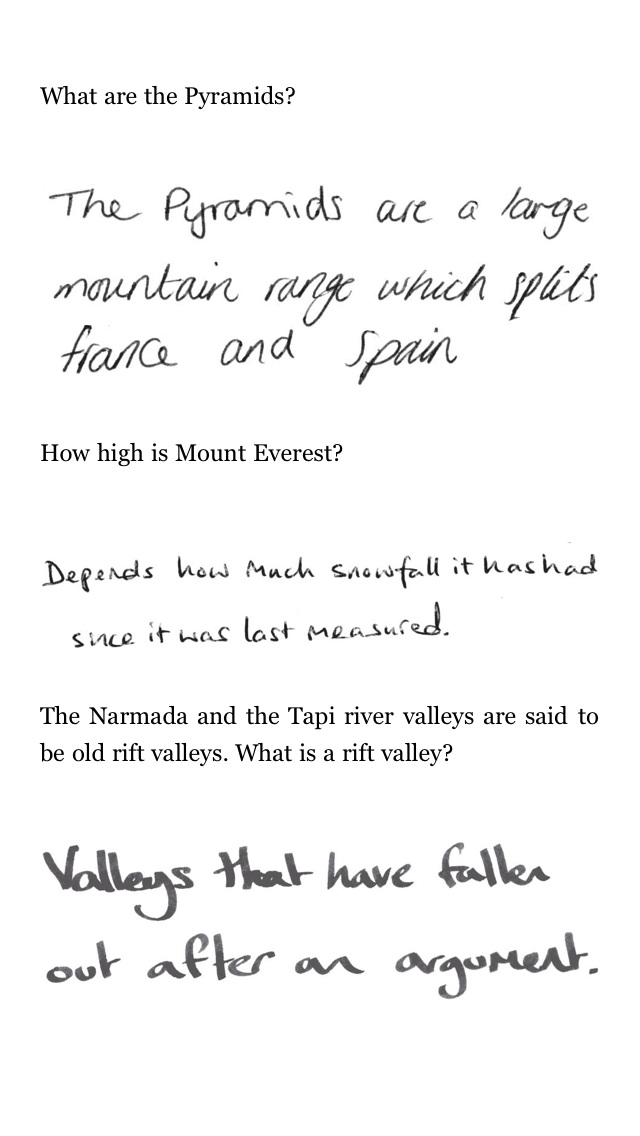 What are the Pyramids?
The Pyramids are a large
mountain range which splits
france and Spain
How high is Mount Everest?
Depends how much snowfall it has had
since it was last measured.
The Narmada and the Tapi river valleys are said to
be old rift valleys. What is a rift valley?
Valleys that have fallen
out after an argument.